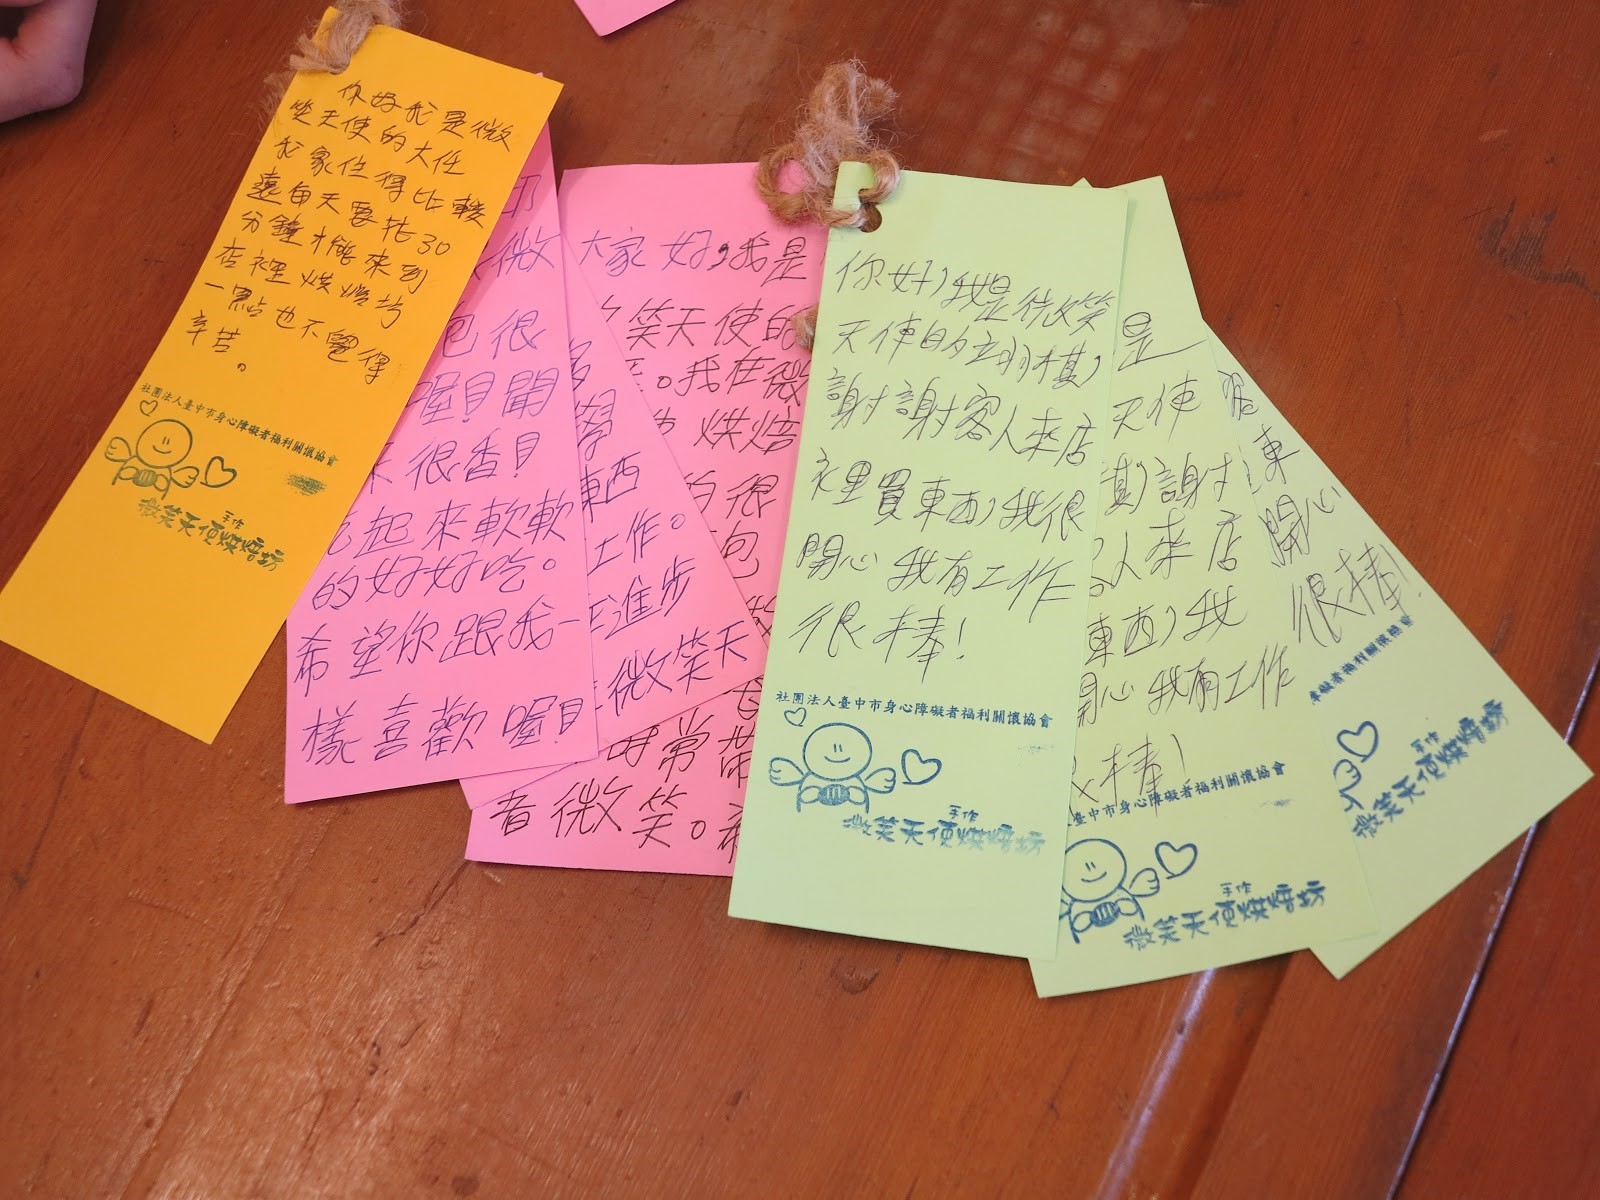 你好我是微
笑天使的大任
我家住得比較
遠每天要花30
分鐘才能來到
店裡烘焙坊
一點也不覺得
辛苦。
社團法人臺中市身心障礙者福利關懷協會
手作
微笑天使烘焙坊
微
包很
喔!聞
來很香!
吃起來軟軟
的好好吃。
希望你跟我一
樣喜歡喔!
學
東西
工作。
進步
微笑天
大家好,我是
笑天使的
。我在微
烘焙
的很
包
時常帶
著微笑。希
你好,我是微笑
天使的立翃棋,
謝謝客人來店
裡買東西,我很
開心我有工作
很棒!
社團法人臺中市身心障礙者福利關懷協會
手作
微笑天使烘焙坊
是
天使
棋,謝
人來店
東西,我
開心我有工作
很棒!
臺中市身心障礙者福利關懷協會
手作
微笑天使烘焙坊
店
東
開心
很棒!
障礙者福利關懷協會
手作
微笑天使烘焙坊